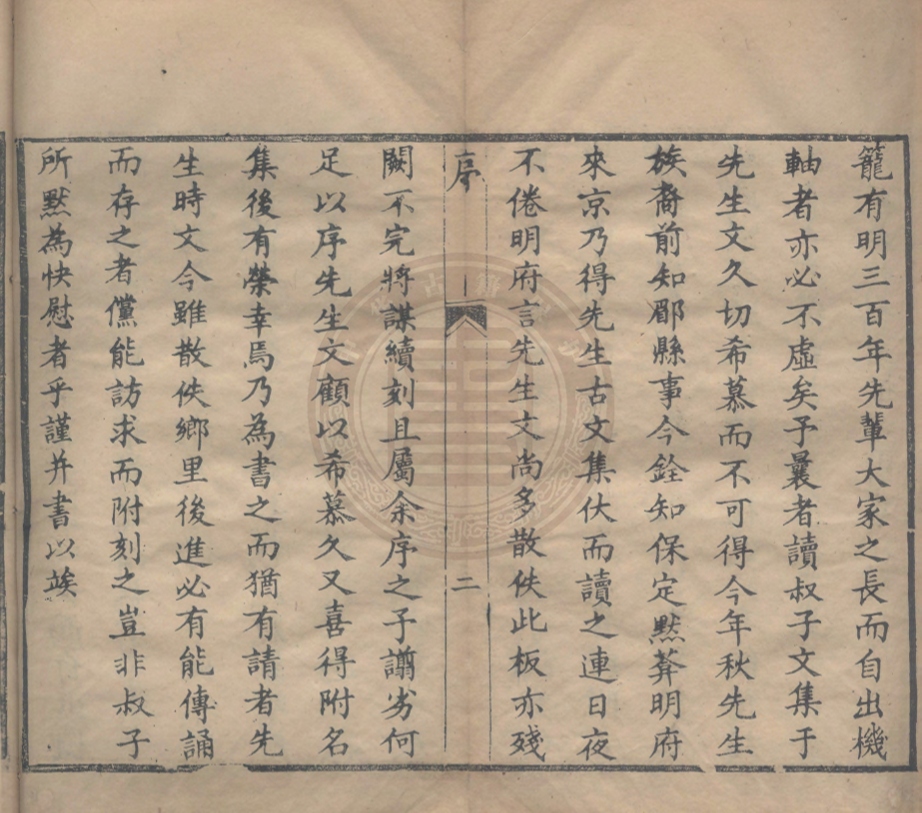 籠有明三百年先輩大家之長而自出機
軸者亦必不虛矣予曩者讀叔子文集于
先生文久切希慕而不可得今年秋先生
族裔前知郿縣事今銓知保定默莾明府
來京乃得先生古文集伏而讀之連日夜
不倦明府言先生文尚多散佚此板亦殘
序
二
闕不完將謀續刻且屬余序之予譾劣何
足以序先生文顧以希慕久又喜得附名
集後有榮幸焉乃為書之而猶有請者先
生時文今雖散佚鄉里後進必有能傳誦
而存之者儻能訪求而附刻之豈非叔子
所黙為快慰者乎謹并書以竢